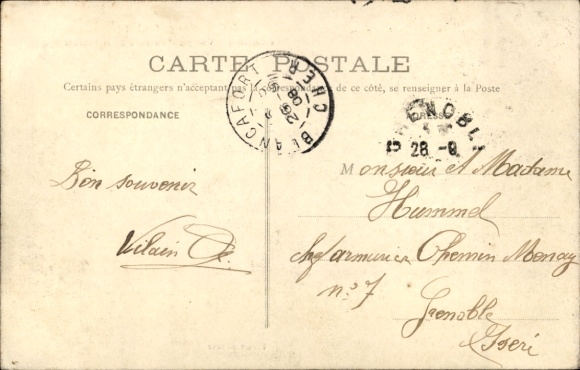 CARTE POSTALE
Certains pays étrangers n'acceptant pas la correspondance de ce côté, se renseigner à la Poste
CORRESPONDANCE
ADRESSE
BLANCAFORT CHER
26 08
GRENOBLE
28 -9
Bon souvenir
Vilain
Monsieur et Madame
Hummel
chef armurier Chemin
n° 7
Grenoble
Iseri